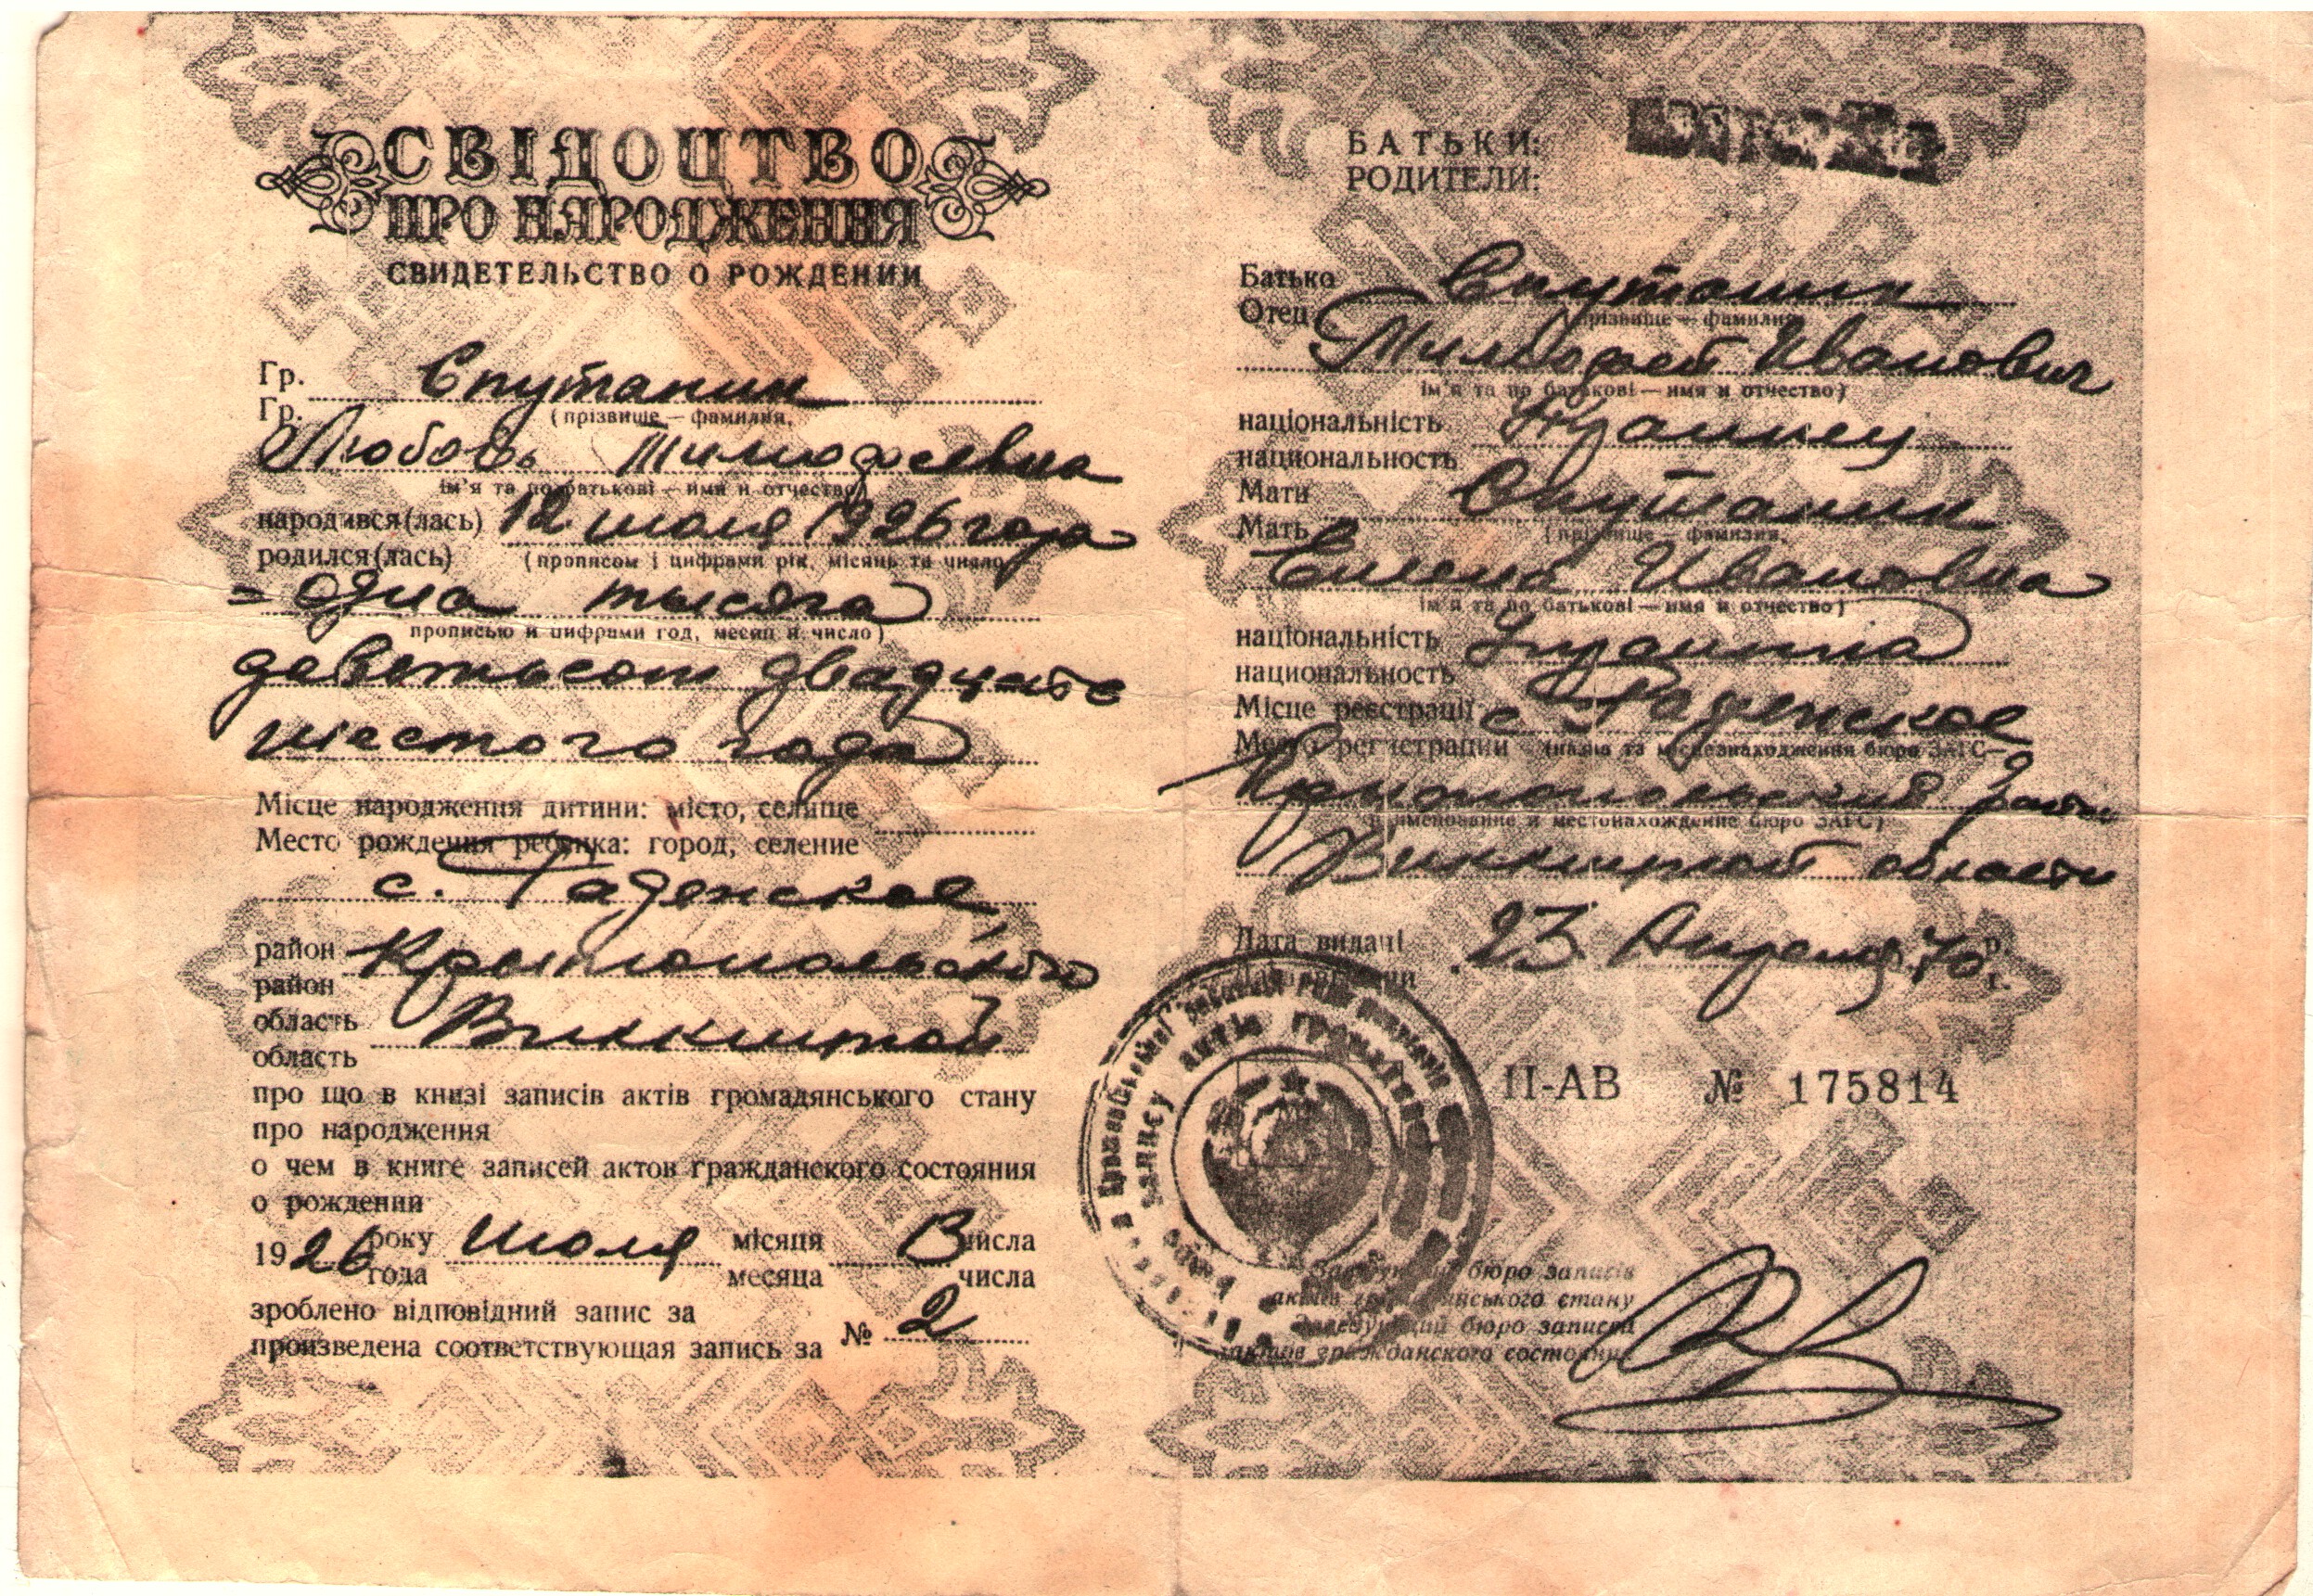 СВІДОЦТВО
ПРО НАРОДЖЕННЯ
СВИДЕТЕЛЬСТВО О РОЖДЕНИИ
Гр. Спутаник
Гр. (прізвище — фамилия)
Любовь Тимофеевна
ім'я та по батькові — имя и отчество)
народився(лась) 12 июля 1926 года
родился(лась) (прописом і цифрами рік, місяць та число
= одна тысяча
прописью и цифрами год, месяц и число)
девятьсот двадцать
шестого года
Місце народження дитини: місто, селище
Место рождения ребенка: город, селение
с.
район
район
область
область
про що в книзі записів актів громадянського стану
про народження
о чем в книге записей актов гражданского состояния
о рождении
1926 року Июля місяця 13 числа
года месяца числа
зроблено відповідний запис за
произведена соответствующая запись за № 2
БАТЬКИ:
РОДИТЕЛИ:
Батько Спутаник
Отец (прізвище — фамилия)
Тимофей Иванович
ім'я та по батькові — имя и отчество)
національність Украинец
национальность
Мати Спутаник
Мать (прізвище — фамилия)
Елена Ивановна
ім'я та по батькові — имя и отчество)
національність Украинка
национальность
Місце реєстрації с.
Место регистрации (назва та місцезнаходження бюро ЗАГС—
район
наименование и местонахождение бюро ЗАГС)
области
Дата видачі 23 Апреля 70 р.
г.
II-АВ № 175814
запису актів громадян
Завідуючий бюро записів
актів громадянського стану
Заведующий бюро записи
актов гражданского состояния